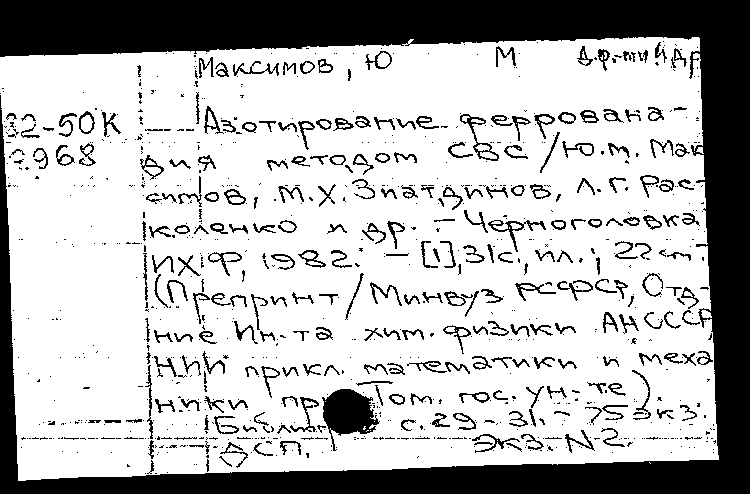 Максимов, Ю М д.ф.-м н др
82-50К
2968
Азотирование феррована-
дия методом СВС / Ю.М. Мак
симов, М.Х. Зиатдинов, Л.Г. Рас-
коленко и др. - Черноголовка
ИХФ, 1982. - [1], 31с., ил.; 22 см.
(Препринт / Минвуз РСФСР, Отд-
ние Ин-та хим. физики АН СССР
НИИ прикл. математики и меха
ники при Том. гос. ун-те).
с. 29-31. - 75 экз.
ДСП. Экз. N 2.